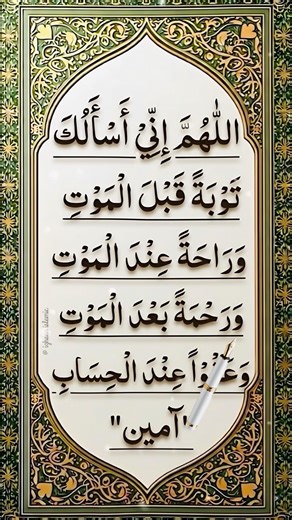 اللّٰهُمَّ إِنِّيْ أَسْأَلُكَ
تَوْبَةً قَبْلَ الْمَوْتِ
وَرَاحَةً عِنْدَ الْمَوْتِ
وَرَحْمَةً بَعْدَ الْمَوْتِ
عِنْدَ الْحِسَابِ
"آمين"